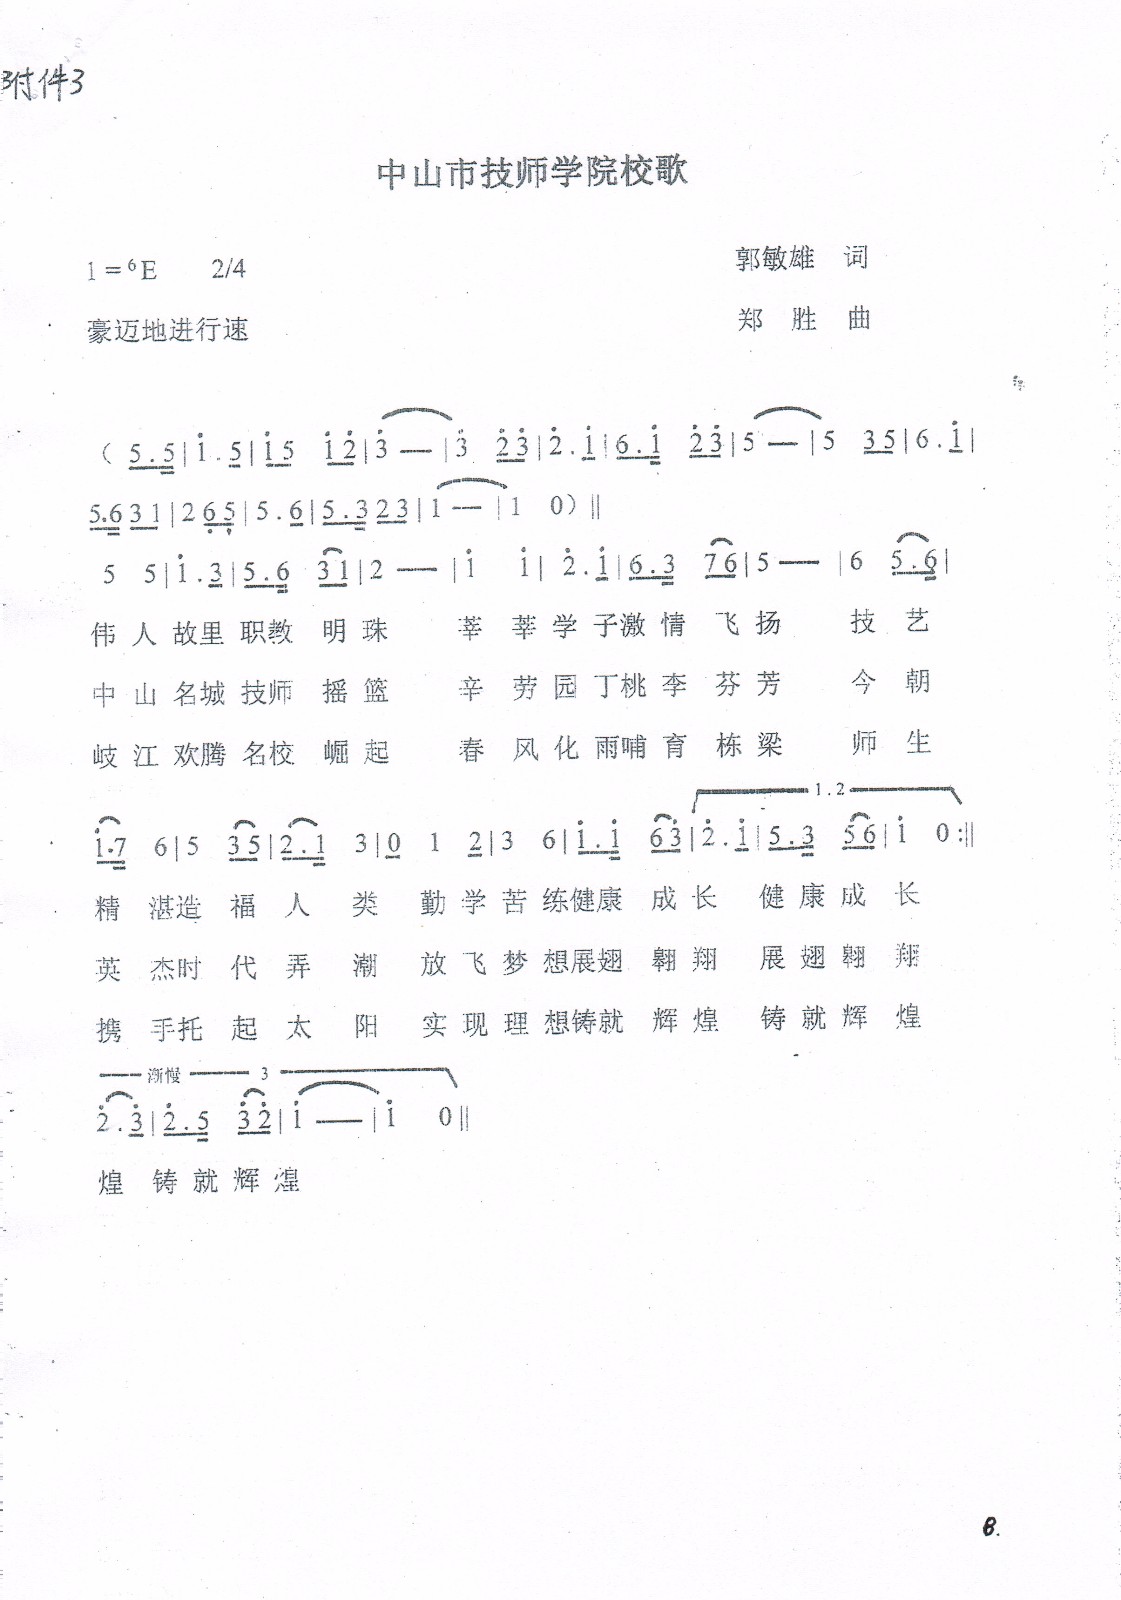 附件3
中山市技师学院校歌
1=⁶E 2/4 郭敏雄 词
豪迈地进行速 郑 胜 曲
( 5.5|i.5|i5 i2̇|3̇ —|3̇ 2̇3̇|2̇.i|6.i 2̇3̇|5 —|5 35|6.i|
5.6 31|2 6̣5̣|5.6|5.3 23|1 —|1 0)‖
5 5|i.3|5.6 31|2 —|i i|2̇.i|6.3 76|5 —|6 5.6|
伟 人 故里 职教 明 珠 莘 莘 学 子激 情 飞 扬 技 艺
中 山 名城 技师 摇 篮 辛 劳 园 丁桃 李 芬 芳 今 朝
岐 江 欢腾 名校 崛 起 春 风 化 雨哺 育 栋 梁 师 生
1.2
i.7 6|5 35|2.1 3|0 1 2|3 6|i.i 63̇|2̇.i|5.3 56|i 0:‖
精 湛造 福 人 类 勤 学 苦 练健康 成 长 健 康 成 长
英 杰时 代 弄 潮 放 飞 梦 想展翅 翱 翔 展 翅 翱 翔
携 手托 起 太 阳 实 现 理 想铸就 辉 煌 铸 就 辉 煌
渐慢 3
2̇.3̇|2̇.5 3̇2̇|i —|i 0‖
煌 铸 就 辉 煌
8.